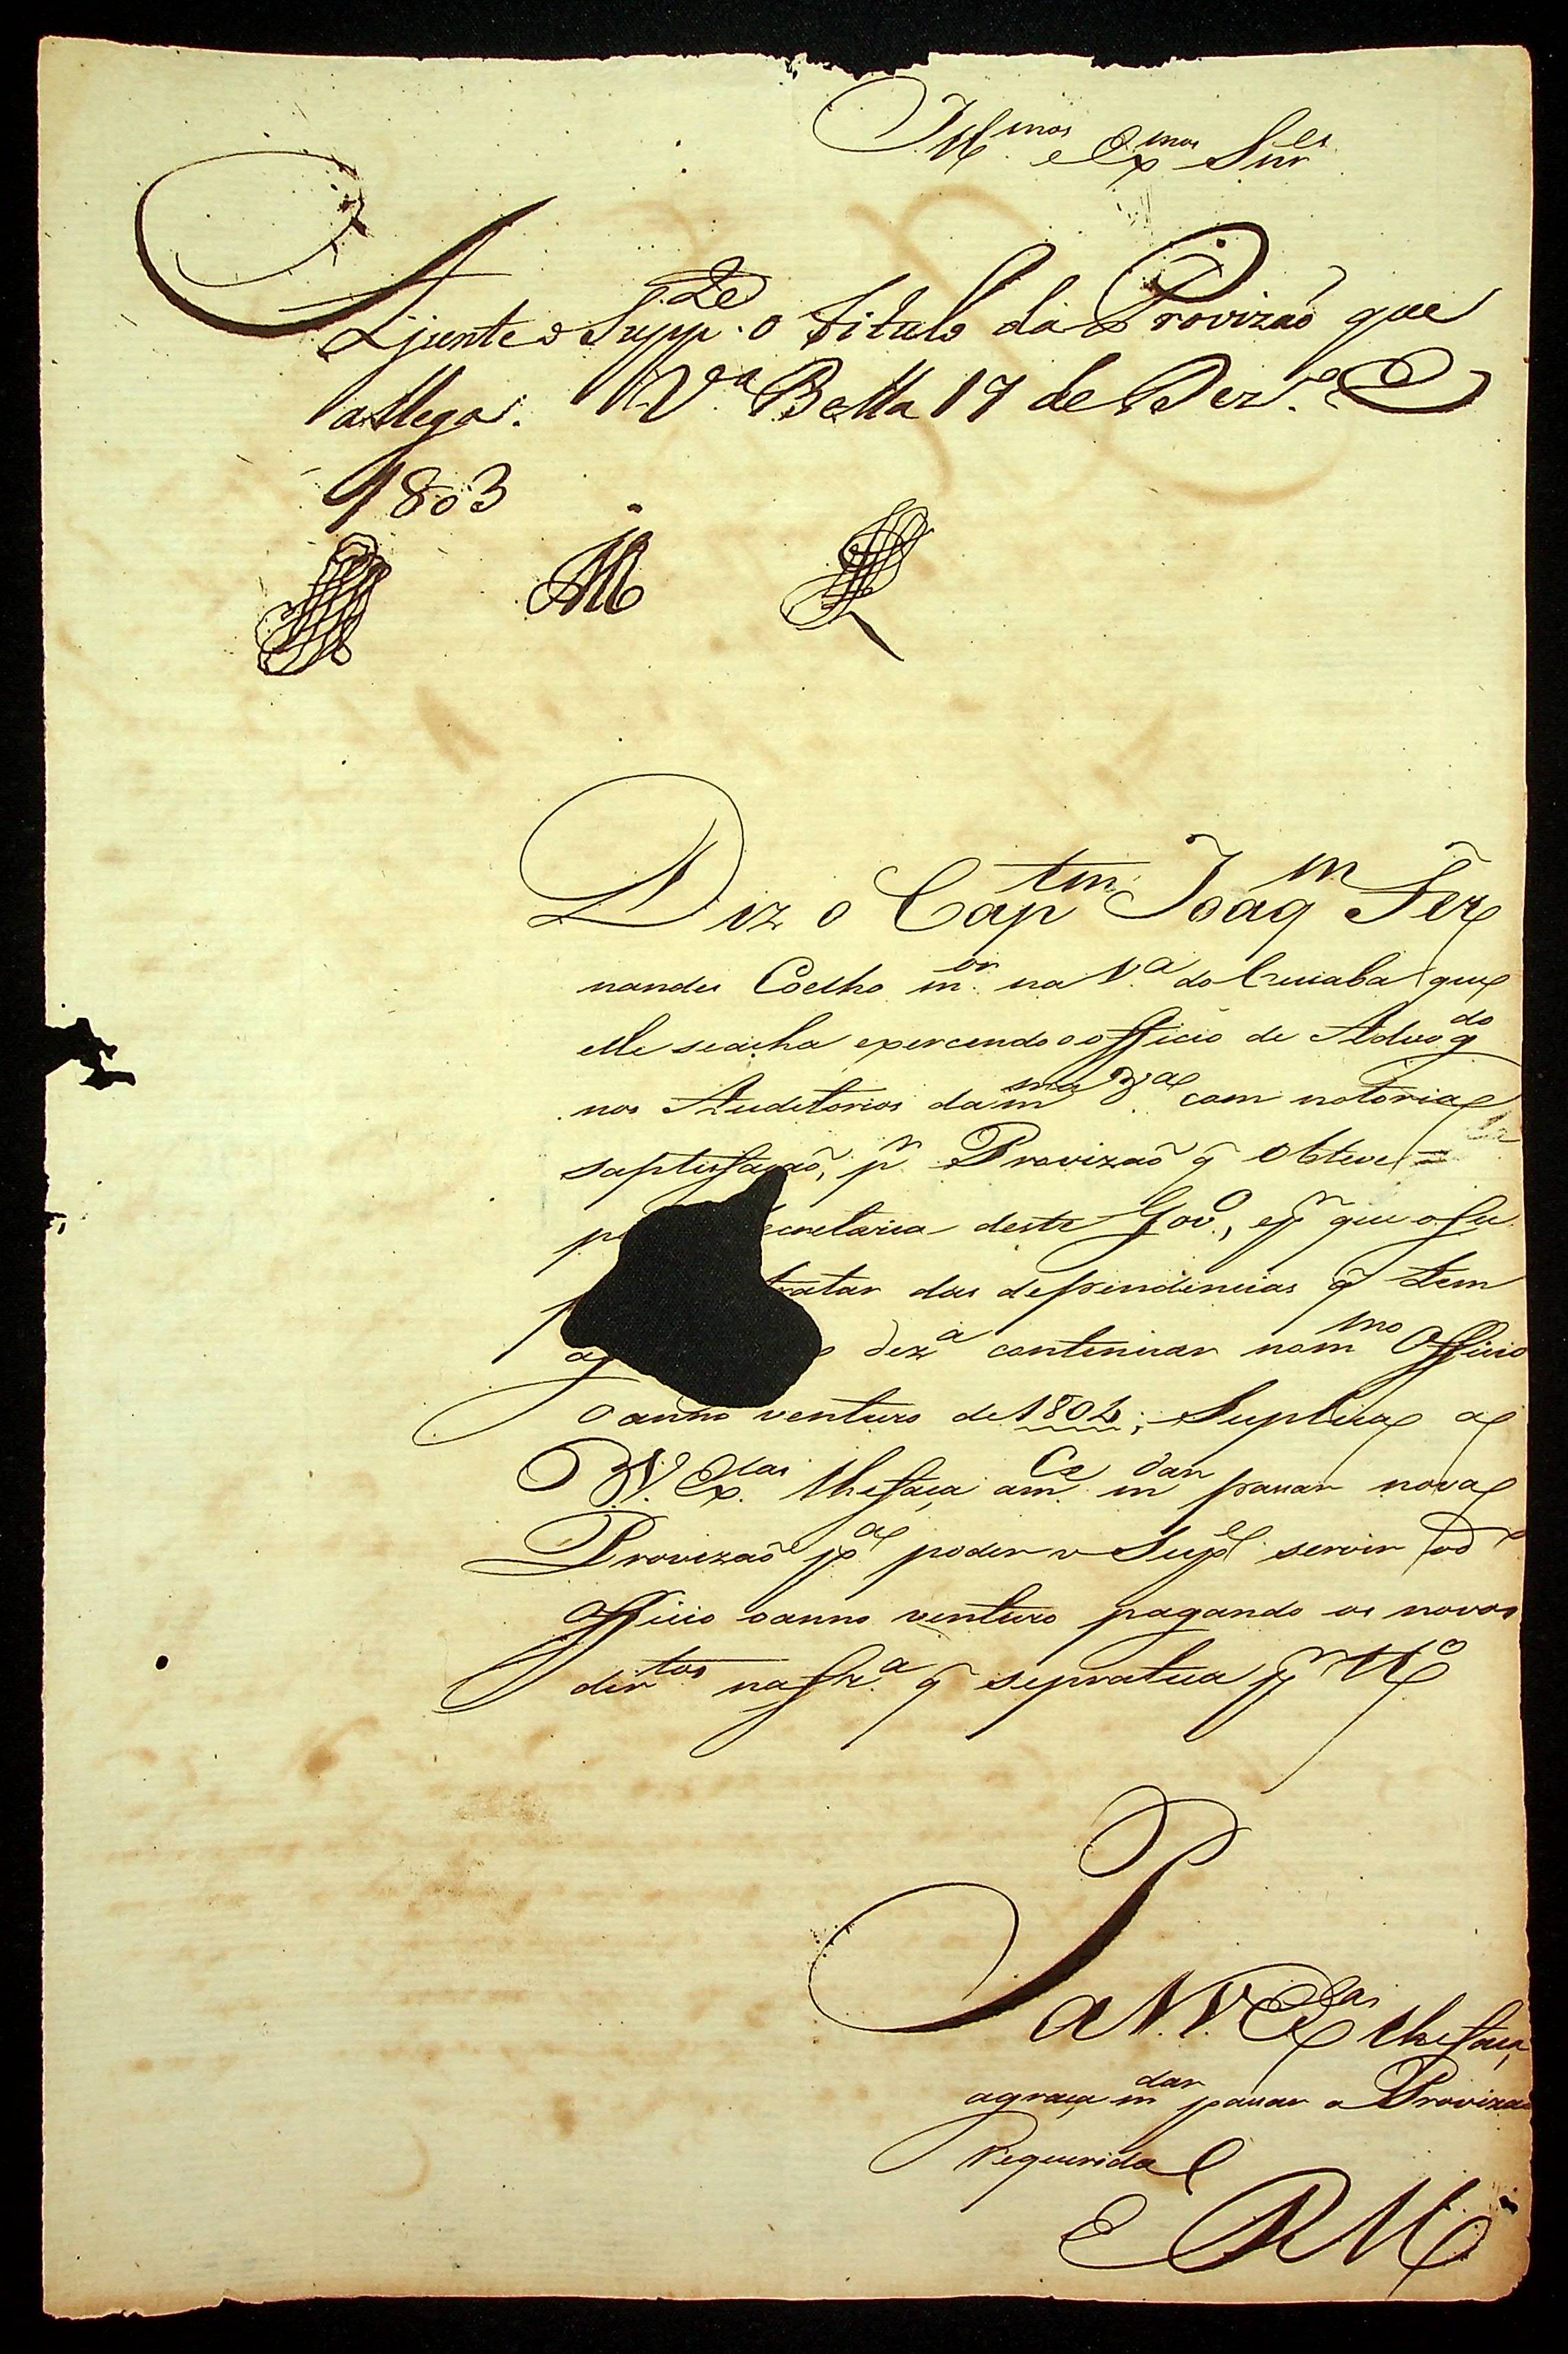 Ill.mos e Ex.mos Snr.es
Ajunte o Supp.te o titulo da Provizaõ que
allega. V.a Bella 17 de Dez.o
1803
Diz o Cap.tm Joaq.m Fer
nandes Coelho m.or na V.a do Cuiaba que
elle seacha exercendo o officio de Advog.do
nos Auditorios dam.ma V.a com notoria
saptisfaçaõ, p.r Provizaõ q̃ Obteve
ecretaria deste Gov.o, ep.r que o su
tratar das dependencias q̃ tem
dez.a continuar nom.mo Officio
o anno venturo de 1804; Suplica a
V.V. Ex.cias lhefaça am.ce m.dar passar nova
Provizaõ p.a poder o Sup.e servir o d.o
Officio o anno venturo pagando os novos
dir.tos na fr.a q̃ sepratica p.r
P
a V.V. Ex.cias lhefaça
agraça m.dar passar a Provizaõ
Requerida
E R M